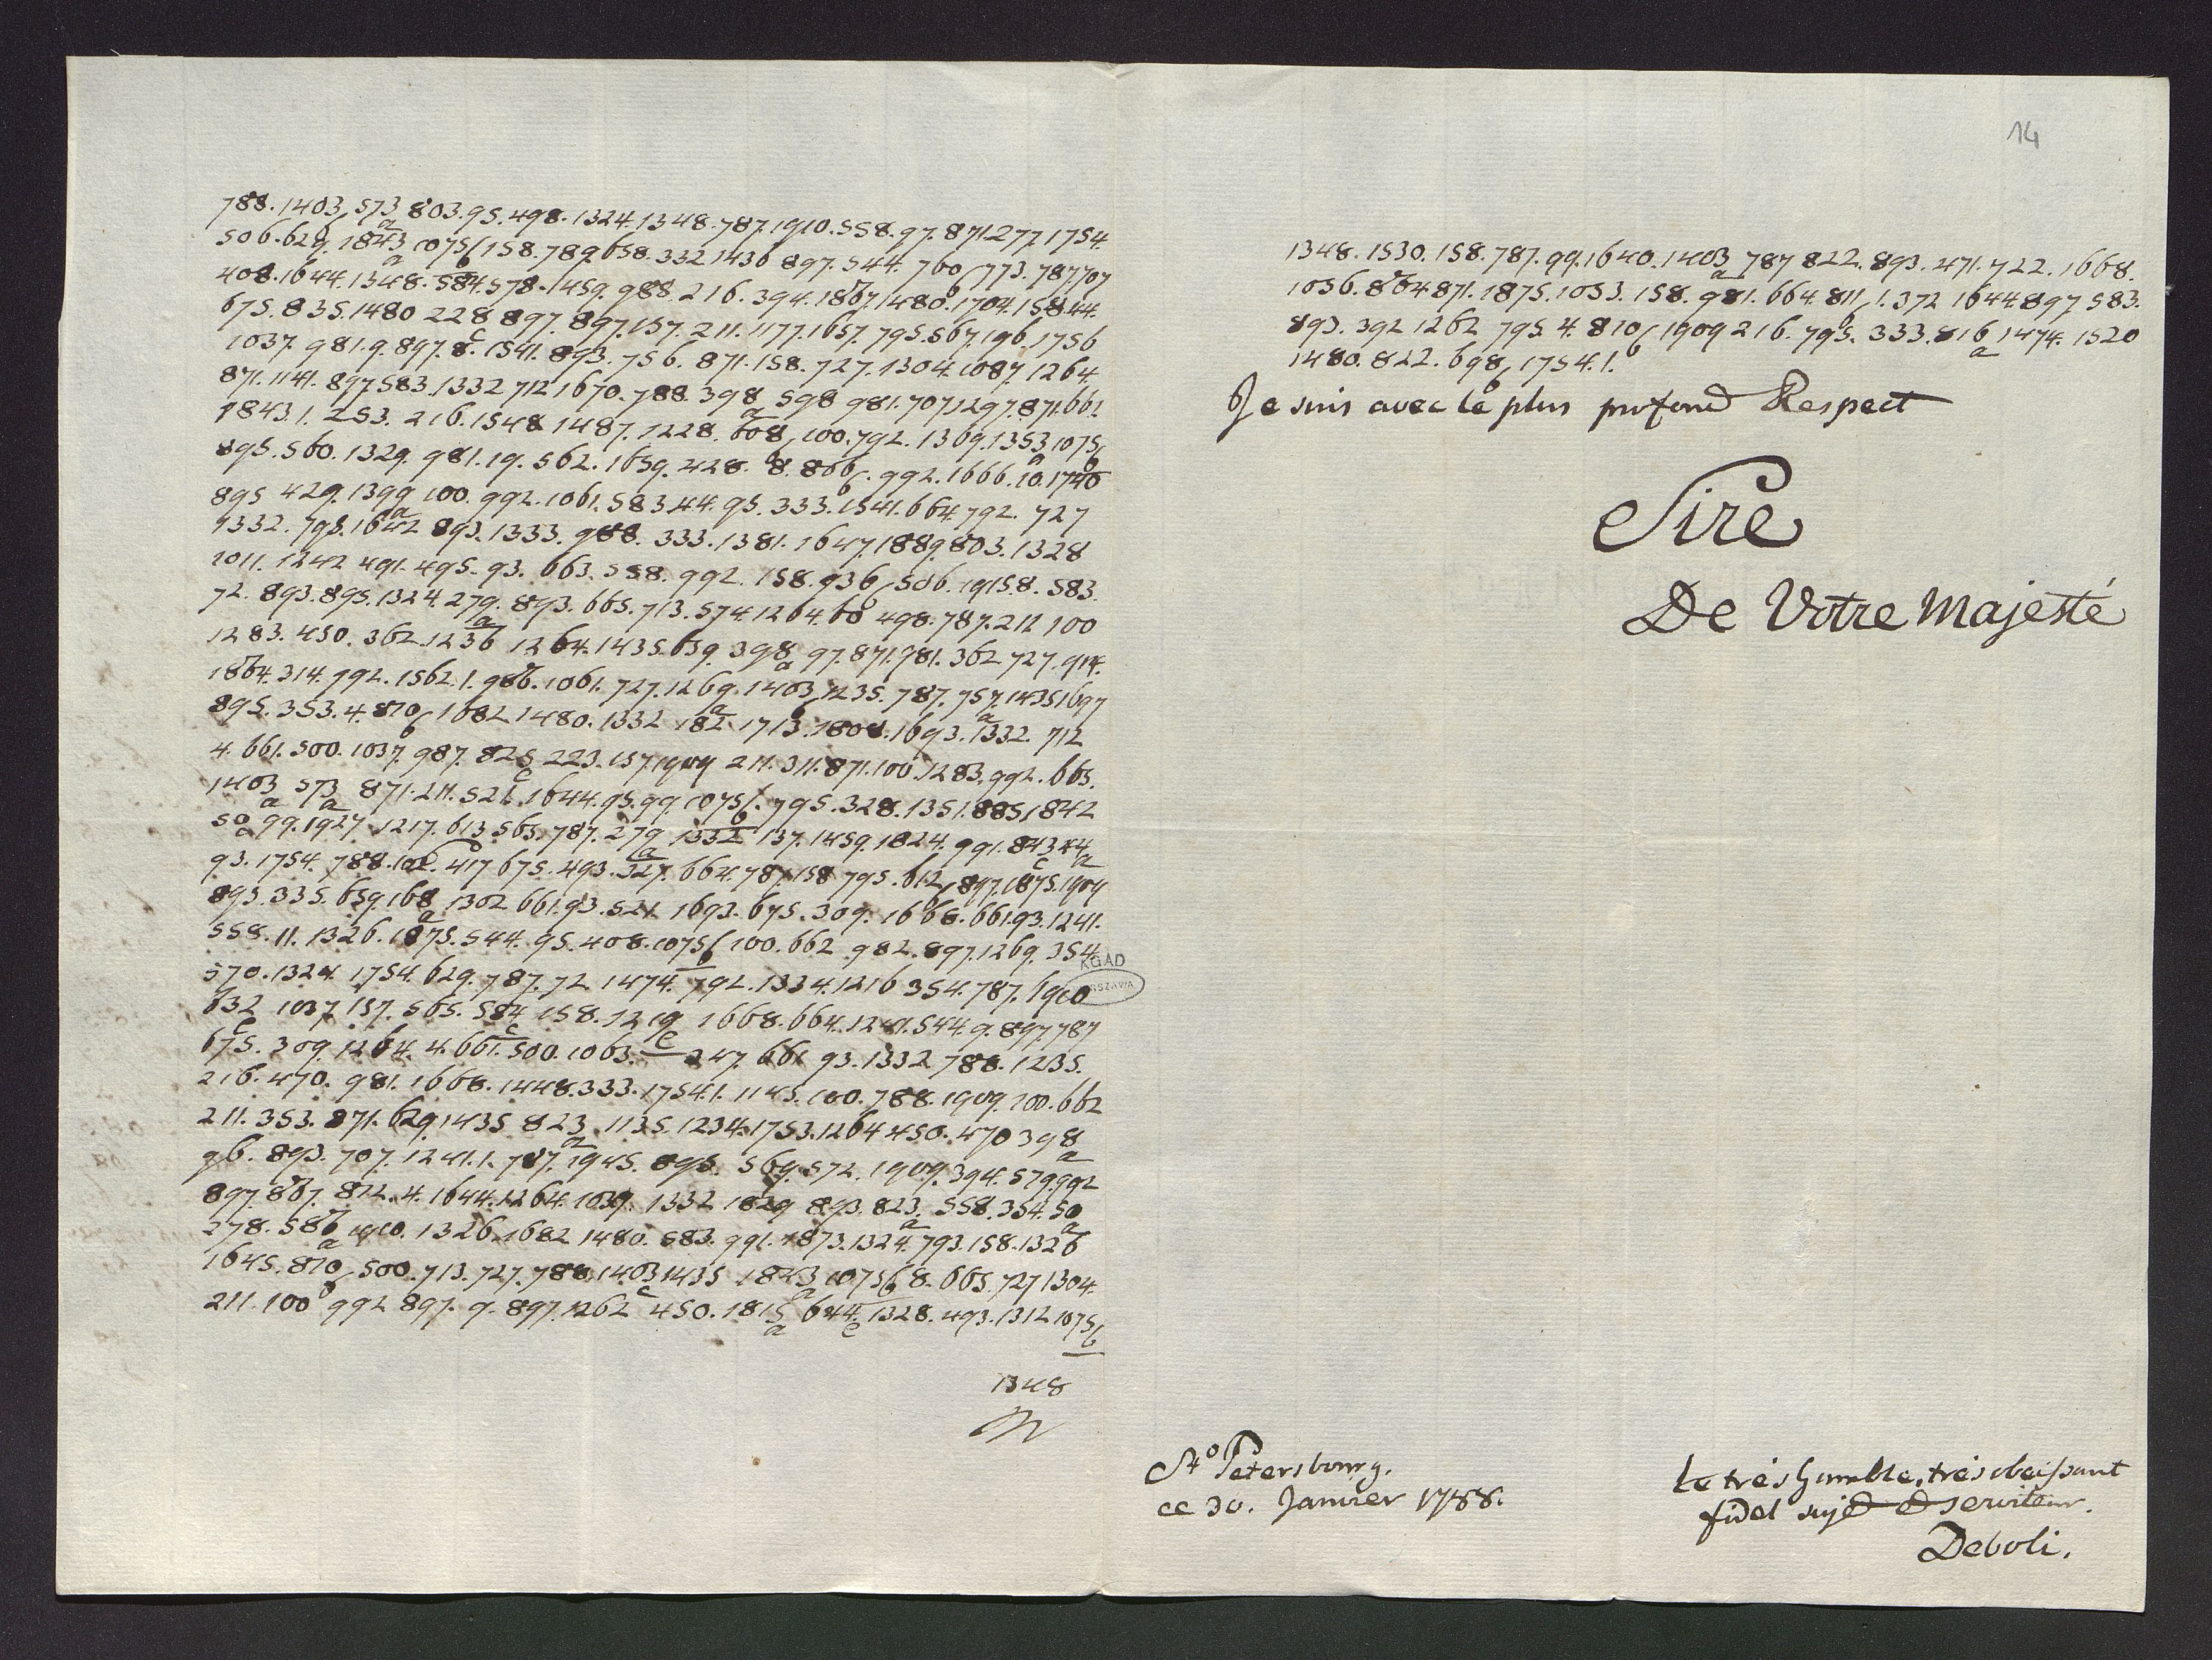 788.1403,573 803.95.498.1324.1348.787.1910.558.97.871.277.1754.
506.629.1843 1075/158.789.658.332.1436 897.544.760/773.787.707
408.1644.1348.584.578.1459.988.216.394.1867.1480.1704.158.44.
675.835.1480 228 897.897.157.211.1177.1657.795.567.196.1756
1037.981.9.897.8.1541.893.756.871.158.727.1304.1087.1264.
871.1141.897.583.1332 712 1670.788.398 598 981.707.1297.871.661.
1843.1.253.216.1548 1487.1228.608,100.792.1369.1353,1075/
895.560.1329.981.19.562.1659.428.8.866/.992.1666.10.1740
895 429.1399 100.992.1061.583.44.95.333.1541.664.792.727
1332.795.1642 893.1333.988.333.1381.1647.1889.803.1328
1011.1242 491.495.93.663.558.992.158.936/506.1915.8.583.
72.893.895.1324.279.893.665.713.574.1264.60 498.787.211 100
1283.450.362.1236 1264.1435.659.398 97.871.981.362 727.914.
1864.314.792.1562.1.986.1061.727.1269.1403,1235.787.757.1435 1697
895.353.4.870/1682 1480.1332 182 1713.1808.1693.1332.712
4.661.500.1037.987.825 223.157.1909 211.311.871.100.1283.992.665.
1403 573 871.211.521.1644.95.99.1075/.795.328.1351.885/842
50 99.1927 1217.613 565.787.279 1332 137.1459.1824.991.843 44
93.1754.788.102.417 675.493.327.664.787.158 795.612/897.1875.1909
893.335.659.168 1302 661.93.521.1693.675.309.1668.661.93.1241.
558.11.1326.1875.544.95.408.1075/100.662 982.897.1269.354
570.1324.1754.629.787.72 1474.792.1334.1216 354.787.1910
632 1037 157.565.584 158.1219 1668.664.1241.544.9.897.787
675.309.1264.4.661.500.1063. 247.661 93.1332 788.1235.
216.470.981.1668.1448.333.1754.1.1145.100.788.1909.100.662
211.353.871.629.1435 823 1135.1234.1753.1264 450.470 398
96.893.707.1241.1.787.1945.895.569.572.1909.394.579.992
897.867.872.4.1644.1264.1039.1332 1829 893.823.558.354.50
278.586 1910.1326.1682 1480.583.991.1873.1324.793.158.1326
1645.870/500.713.727.788.1403 1435 1843 1075/8.665.727 1304.
211.100 992 897.9.897.1262 450.1815 644.1328.493.1312 1075/
1348
14
1348.1530.158.787.99.1640.1403 787 822.893.471.722.1668.
1056.864.871.1875.1053.158.981.664.811/1.372 1644.897 583.
893.392 1262 795.4.810/1909 216.795.333.816 1474.1520
1480.822.698,1754.1.
Je suis avec le plus profond Respect
Sire
De Votre Majesté
KGAD
St Petersbourg.
ce 30. Janvier 1788.
Le trés humble, trés obeissant
fidel sujet et serviteur.
Deboli.